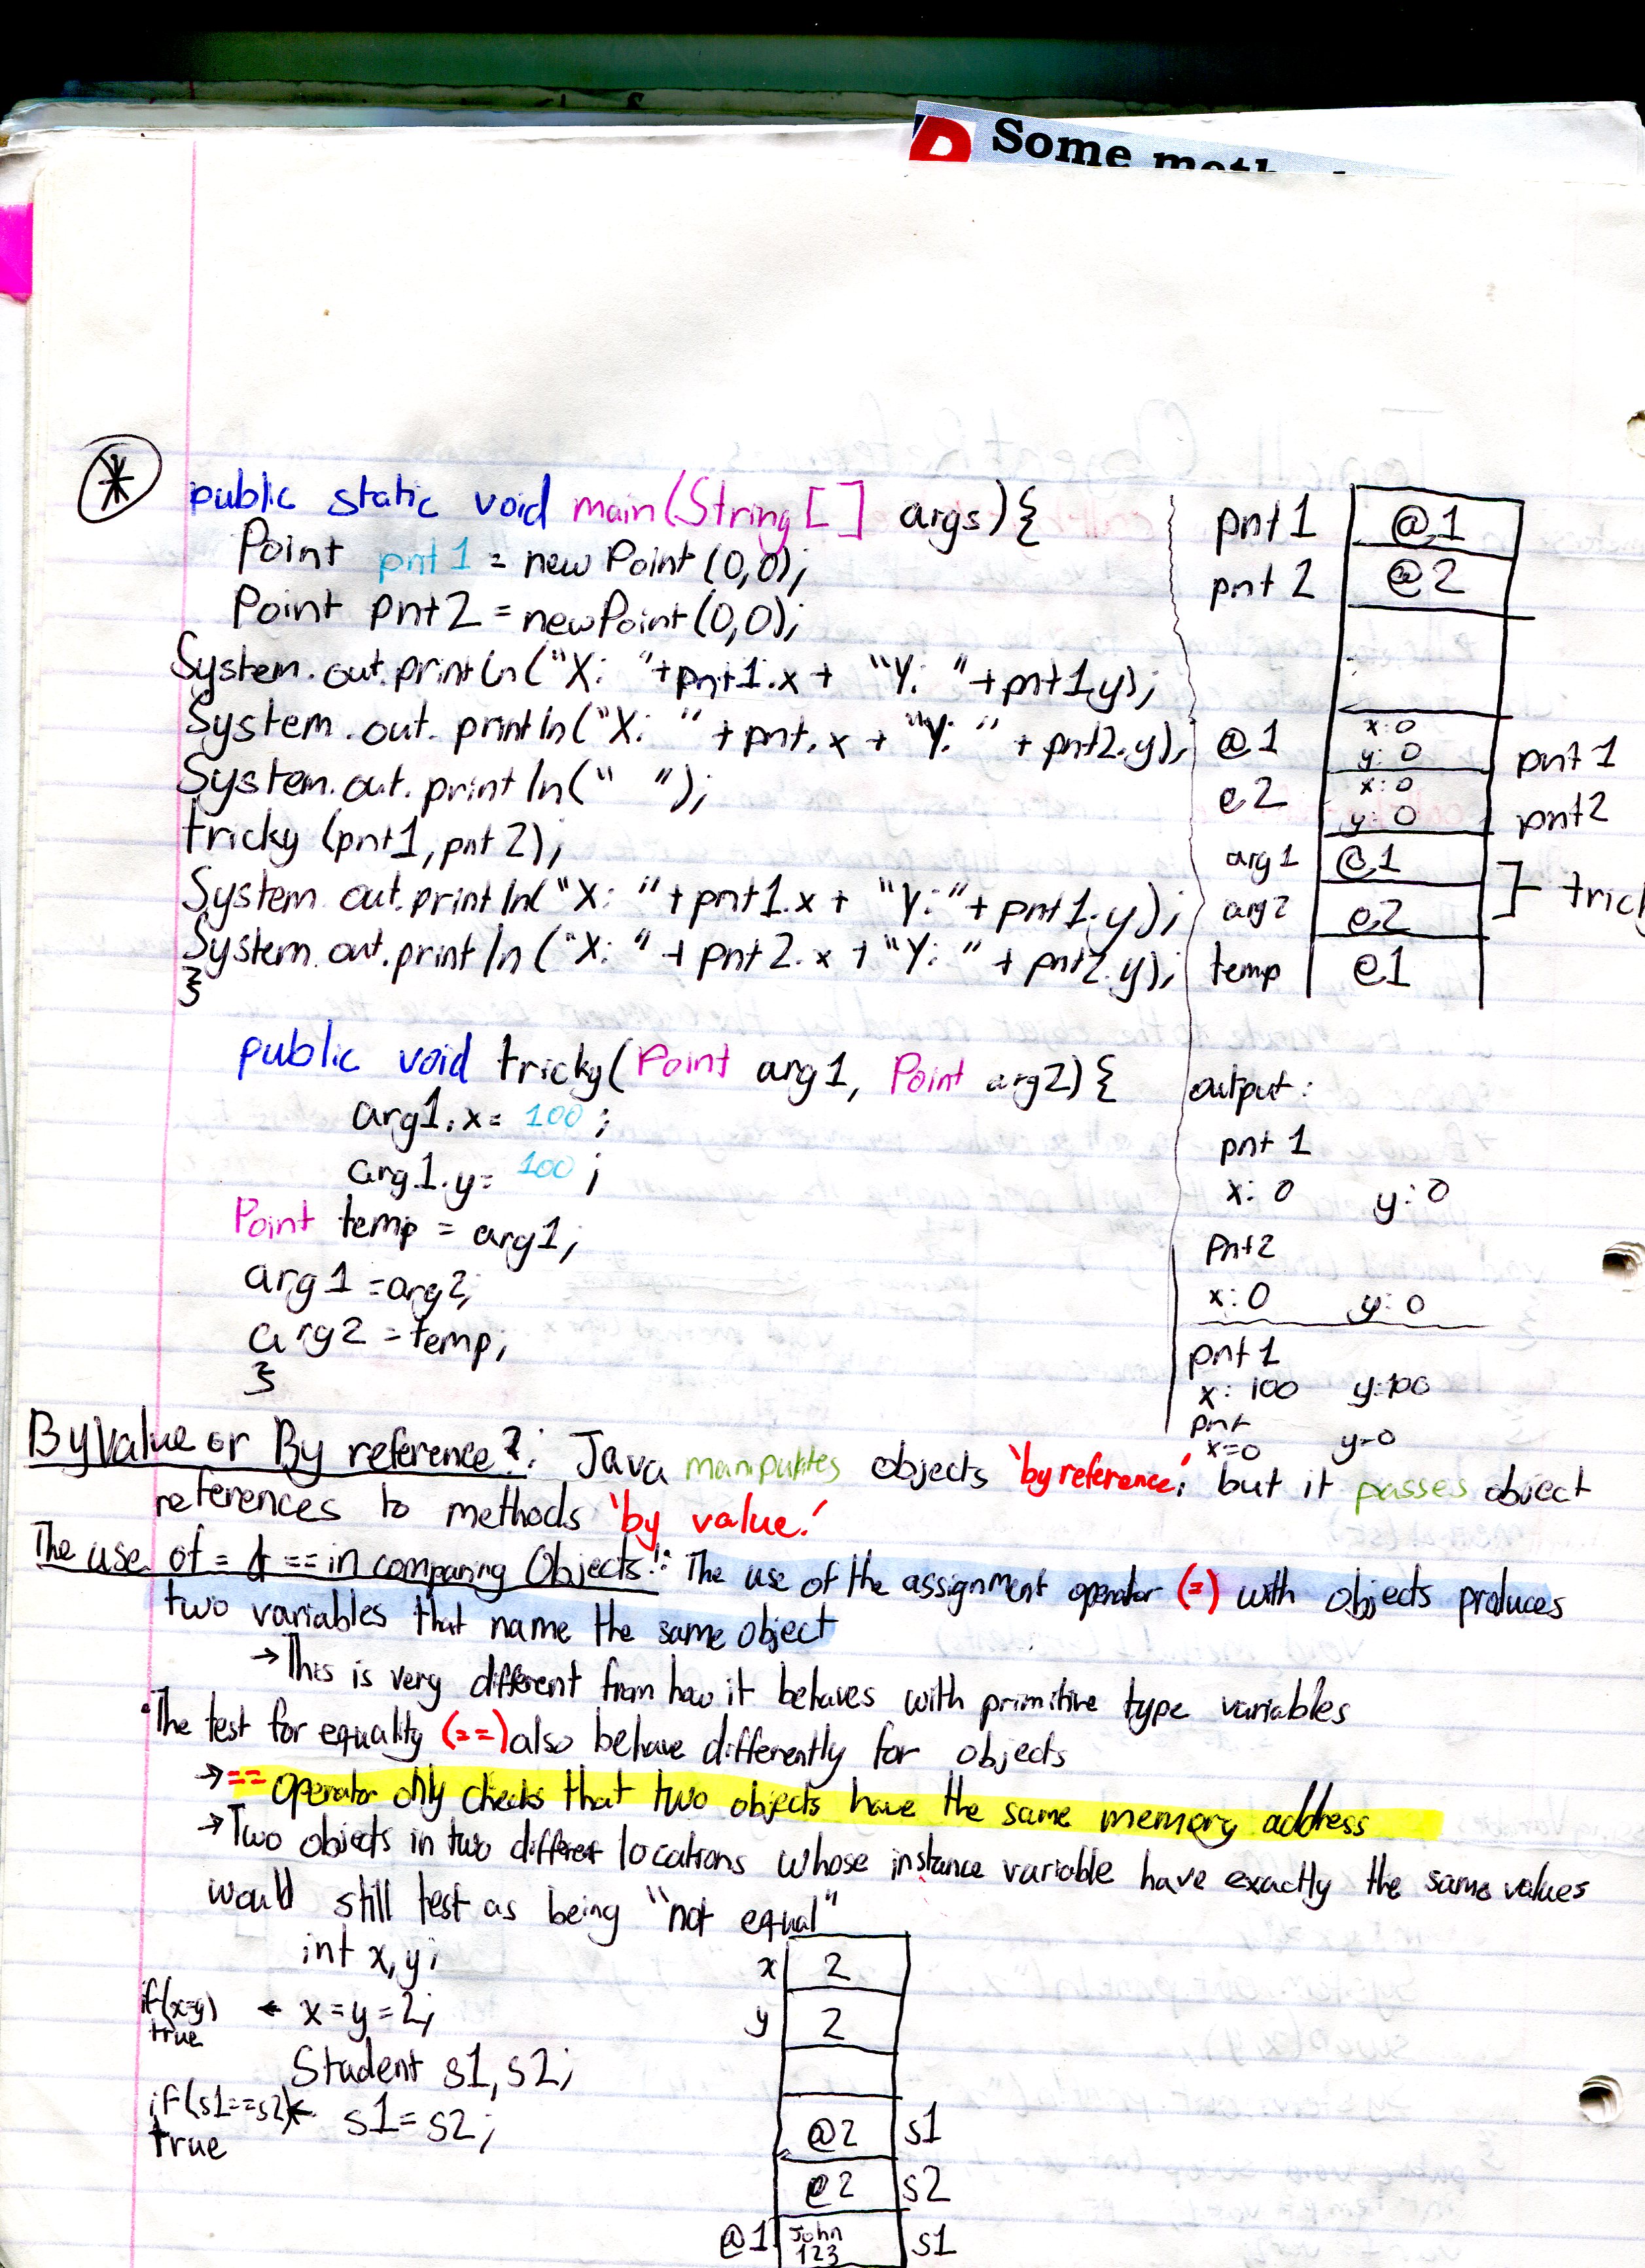 Some
public static void main(String[] args){
Point pnt1 = new Point(0,0);
Point pnt2 = new Point(0,0);
System.out.println("X: "+pnt1.x + "Y: "+pnt1.y);
System.out.println("X: "+pnt.x + "Y: " + pnt2.y);
System.out.println(" ");
tricky (pnt1, pnt2);
System.out.println("X: "+pnt1.x + "Y:"+pnt1.y);
System.out.println("X: "+pnt2.x + "Y: " + pnt2.y);
}
public void tricky(Point arg1, Point arg2){
arg1.x= 100;
arg1.y= 100;
Point temp = arg1;
arg1 =arg2;
arg2 =temp;
}
pnt1 @1
pnt2 @2
x:0
@1 y:0 pnt1
x:0
@2 y:0 pnt2
arg1 @1
arg2 @2
temp @1
output:
pnt 1
x: 0 y: 0
Pnt2
x: 0 y: 0
pnt1
x: 100 y:100
pnt
x=0 y=0
By Value or By reference?: Java manipulates objects 'by reference', but it passes object
references to methods 'by value.'
The use of = & == in comparing Objects!: The use of the assignment operator (=) with objects produces
two variables that name the same object
→This is very different from how it behaves with primitive type variables
•The test for equality (==) also behave differently for objects
→== operator only checks that two objects have the same memory address
→Two objects in two different locations whose instance variable have exactly the same values
would still test as being "not equal"
int x, y;
if(x=y) ← x=y=2;
true
Student s1, s2;
if(s1==s2)← s1=s2;
true
x 2
y 2
@2 s1
@2 s2
@1 John s1
123